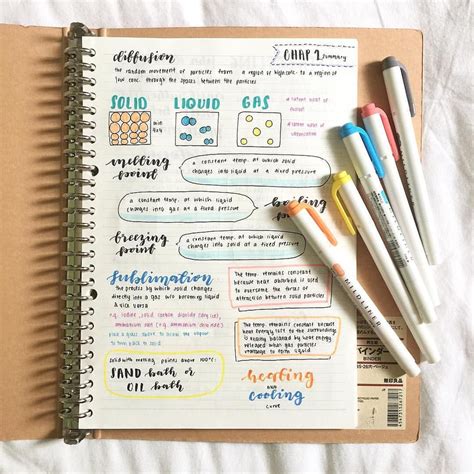 diffusion
CHAP 1 summary
the random movement of particles from a region of high conc. to a region of
low conc. through the spaces between the particles
SOLID LIQUID GAS
melting
point
a constant temp. at which solid
changes into liquid at a fixed pressure
boiling
point
a constant temp. at which liquid
changes into gas at a fixed pressure
freezing
point
a constant temp. at which liquid
changes into solid at a fixed pressure
sublimation
the process by which solid changes
directly into a gas w/o becoming liquid
& vice versa
e.g. iodine, solid carbon dioxide (dry ice),
ammonium salt (e.g. ammonium chloride)
The temp. remains constant
because heat absorbed is used
to overcome the forces of
attraction between solid particles
The temp. remains constant because
heat energy lost to the surroundings
is balanced by heat energy
released when particles
to form liquid
solid with melting points above 100°C:
SAND bath or
OIL bath
heating
and
cooling
curve
MILDLINER
バインダー
BINDER
無印良品